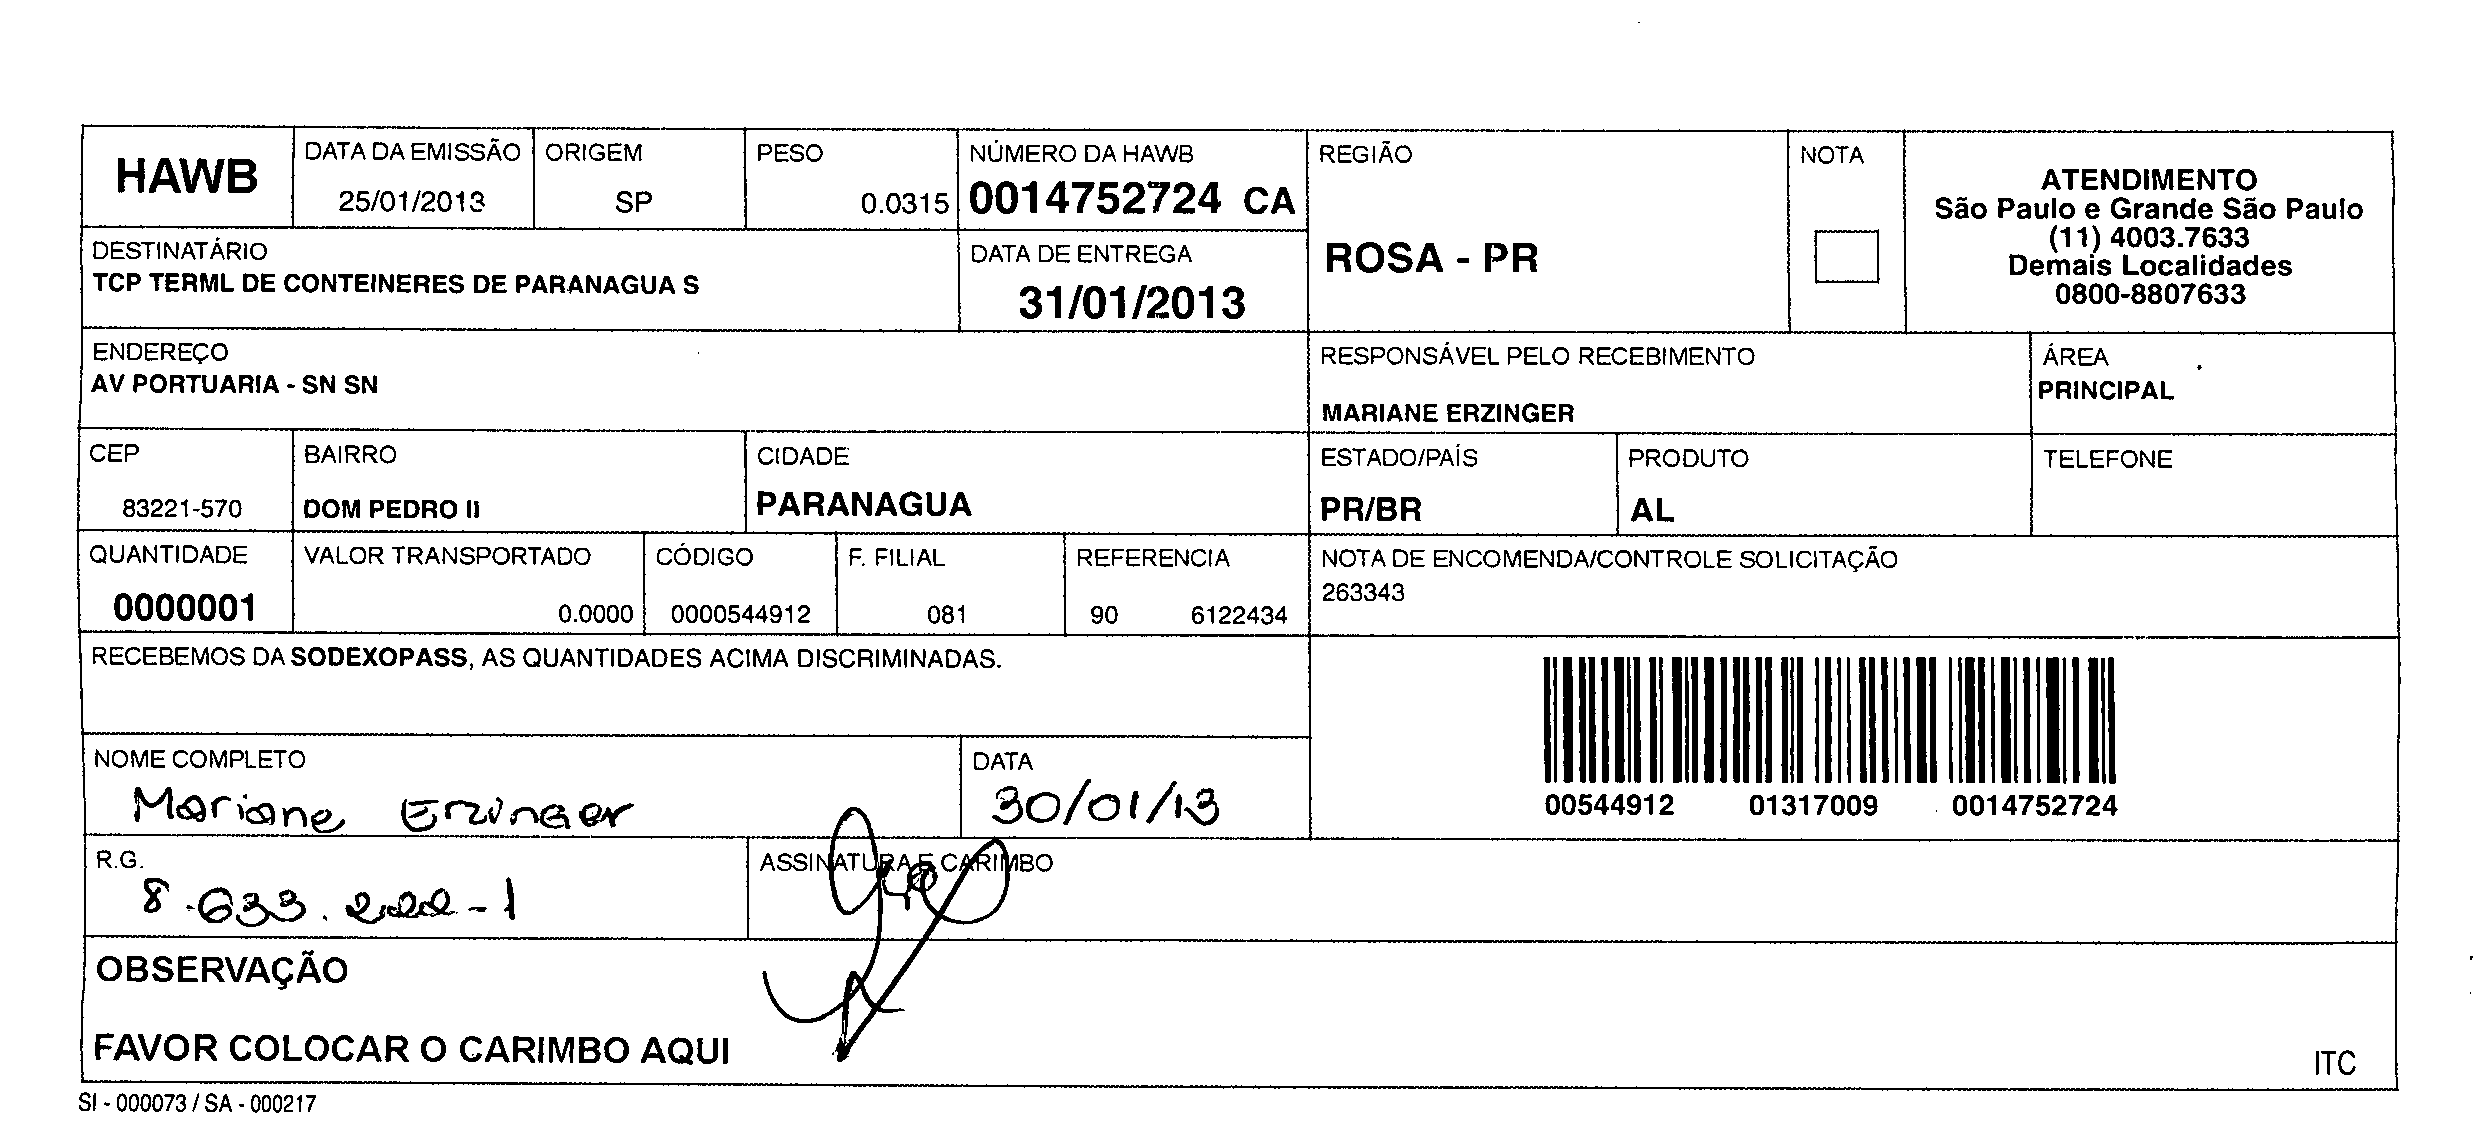 HAWB
DATA DA EMISSÃO
25/01/2013
ORIGEM
SP
PESO
0.0315
NÚMERO DA HAWB
0014752724 CA
REGIÃO
ROSA - PR
NOTA
ATENDIMENTO
São Paulo e Grande São Paulo
(11) 4003.7633
Demais Localidades
0800-8807633
DESTINATÁRIO
TCP TERML DE CONTEINERES DE PARANAGUA S
DATA DE ENTREGA
31/01/2013
ENDEREÇO
AV PORTUARIA - SN SN
RESPONSÁVEL PELO RECEBIMENTO
MARIANE ERZINGER
ÁREA
PRINCIPAL
CEP
83221-570
BAIRRO
DOM PEDRO II
CIDADE
PARANAGUA
ESTADO/PAÍS
PR/BR
PRODUTO
AL
TELEFONE
QUANTIDADE
0000001
VALOR TRANSPORTADO
0.0000
CÓDIGO
0000544912
F. FILIAL
081
REFERENCIA
90 6122434
NOTA DE ENCOMENDA/CONTROLE SOLICITAÇÃO
263343
RECEBEMOS DA SODEXOPASS, AS QUANTIDADES ACIMA DISCRIMINADAS.
00544912 01317009 0014752724
NOME COMPLETO
Mariane Erzinger
DATA
30/01/13
R.G.
8.633.222-1
ASSINATURA E CARIMBO
OBSERVAÇÃO
FAVOR COLOCAR O CARIMBO AQUI
ITC
SI - 000073 / SA - 000217